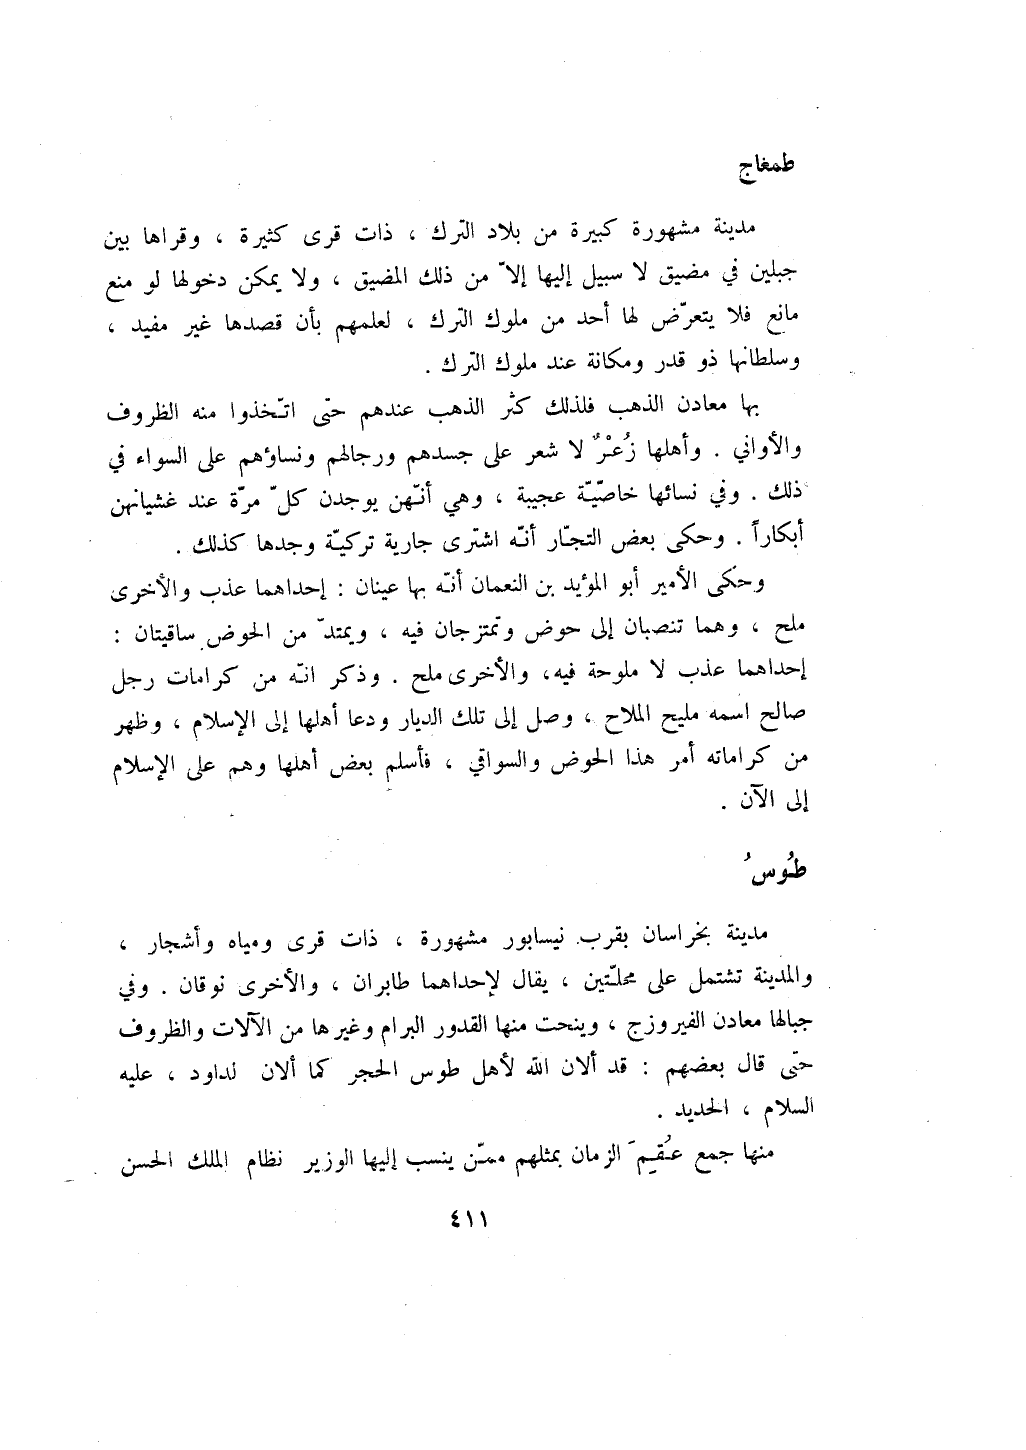 طمغاج
مدينة مشهورة كبيرة من بلاد الترك ، ذات قرى كثيرة ، وقراها بين
جبلين في مضيق لا سبيل إليها إلاّ من ذلك المضيق ، ولا يمكن دخولها لو منع
مانع فلا يتعرّض لها أحد من ملوك الترك ، لعلمهم بأن قصدها غير مفيد ،
وسلطانها ذو قدر ومكانة عند ملوك الترك .
بها معادن الذهب فلذلك كثر الذهب عندهم حتّى اتّخذوا منه الظروف
والأواني . وأهلها زُعْرٌ لا شعر على جسدهم ورجالهم ونساؤهم على السواء في
ذلك . وفي نسائها خاصّيّة عجيبة ، وهي أنّهن يوجدن كلّ مرّة عند غشيانهن
أبكاراً . وحكى بعض التجّار أنّه اشترى جارية تركيّة وجدها كذلك .
وحكى الأمير أبو المؤيد بن النعمان أنّه بها عينان : إحداهما عذب والأخرى
ملح ، وهما تنصبان إلى حوض وتمتزجان فيه ، ويمتدّ من الحوض ساقيتان :
إحداهما عذب لا ملوحة فيه، والأخرى ملح . وذكر انّه من كرامات رجل
صالح اسمه مليح الملاح ، وصل إلى تلك الديار ودعا أهلها إلى الإسلام ، وظهر
من كراماته أمر هذا الحوض والسواقي ، فأسلم بعض أهلها وهم على الإسلام
إلى الآن .
طُوسُ
مدينة بخراسان بقرب نيسابور مشهورة ، ذات قرى ومياه وأشجار ،
والمدينة تشتمل على محلّتين ، يقال لإحداهما طابران ، والأخرى نوقان . وفي
جبالها معادن الفيروزج ، وينحت منها القدور البرام وغيرها من الآلات والظروف
حتّى قال بعضهم : قد ألان الله لأهل طوس الحجر كما ألان لداود ، عليه
السلام ، الحديد .
منها جمع عُقِمَ الزمان بمثلهم ممّن ينسب إليها الوزير نظام الملك الحسن
٤١١